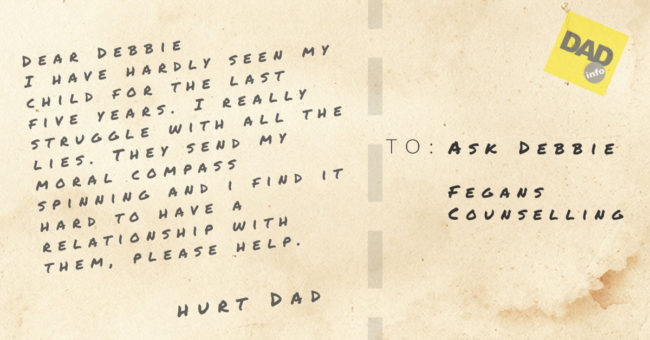 DEAR DEBBIE
I HAVE HARDLY SEEN MY
CHILD FOR THE LAST
FIVE YEARS. I REALLY
STRUGGLE WITH ALL THE
LIES. THEY SEND MY
MORAL COMPASS
SPINNING AND I FIND IT
HARD TO HAVE A
RELATIONSHIP WITH
THEM, PLEASE HELP.
HURT DAD
DAD
info
TO: ASK DEBBIE
FEGANS
COUNSELLING